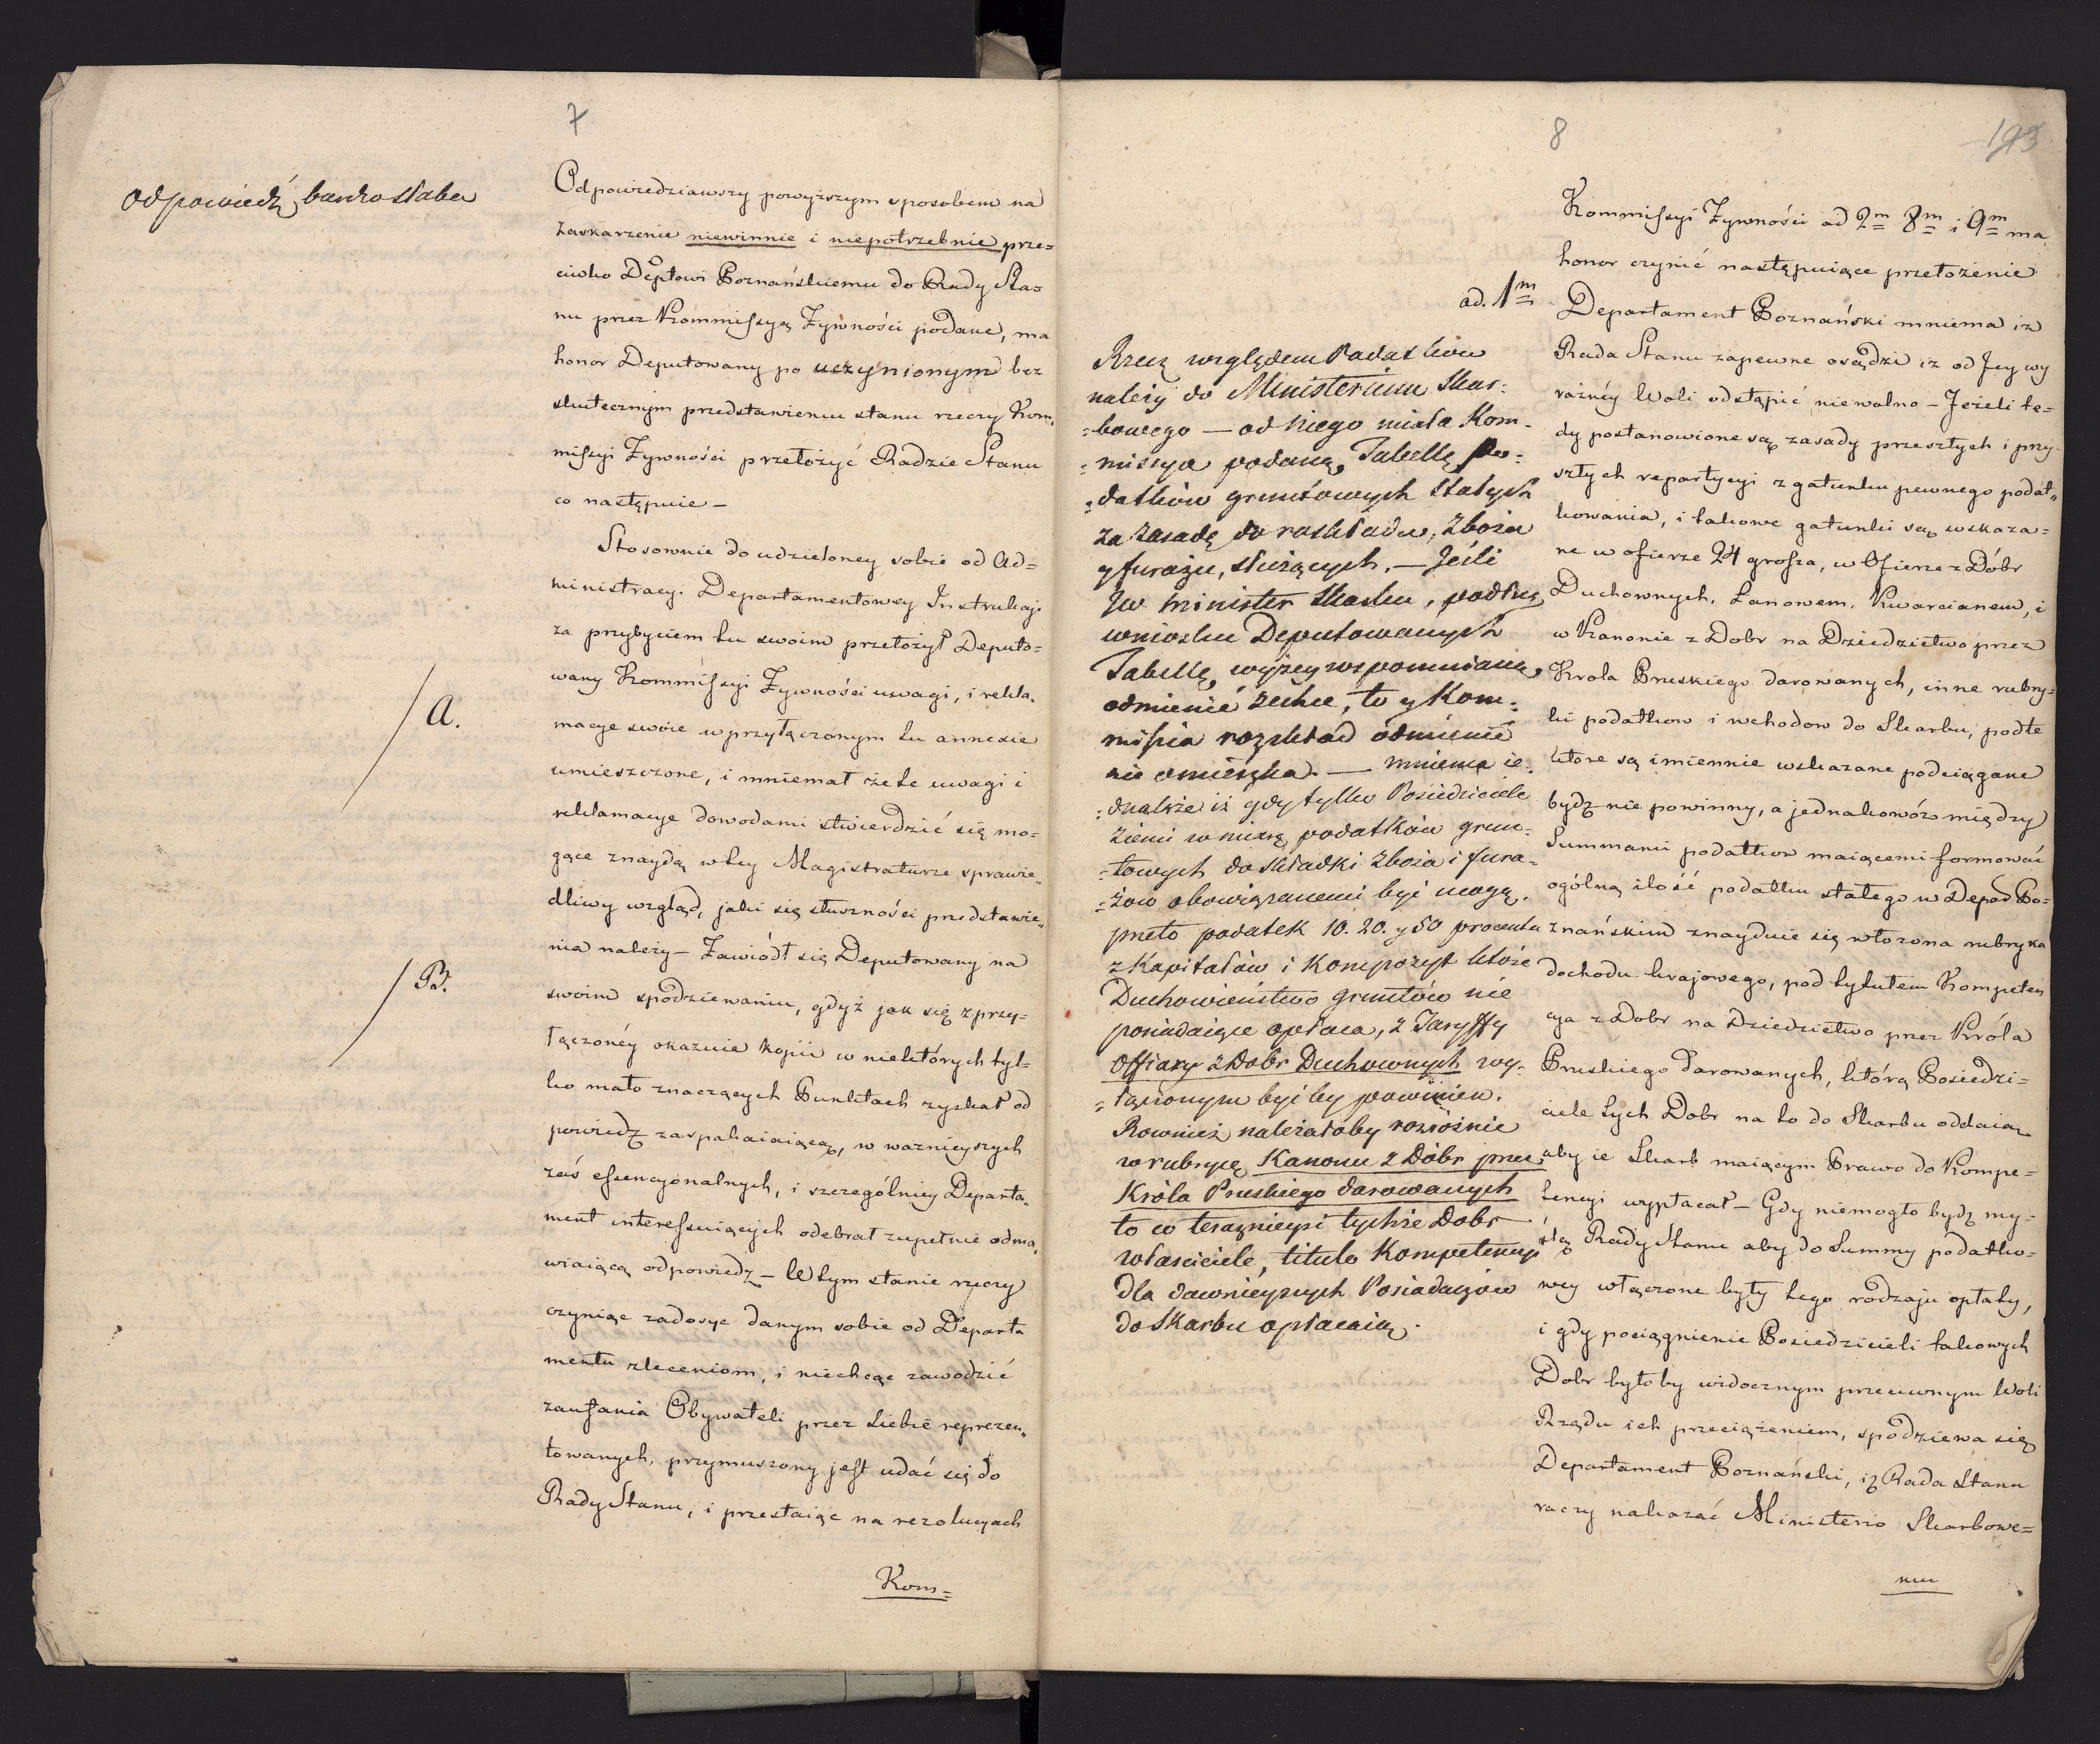 7
odpowiedź bardzo słaba
Odpowiedziawszy powyższym sposobem na
zaskarzenie niewinnie i niepotrzebnie prze=
ciwko Deptowi Poznańskiemu do Rady Sta=
nu przez Kommissyą Zywności podane, ma
honor Deputowany po uczynionym bez
skutecznym przedstawieniu stanu rzeczy Kom,
missyi Zywności przełożyć Radzie Stanu
co następuie –
Stosownie do udzieloney sobie od Ad=
ministracy. Departamentowey Instrukcji
za przybyciem tu swoim przełożył Deputo=
wany Kommissyi Zywności uwagi, i rekla,
macye swoie w przyłączonym tu annexie
A.
umieszczone, i mniemał że te uwagi i
reklamacye dowodami stwierdzić się mo=
gące znaydą w tey Magistraturze sprawie„
dliwy wzgląd, jaki się słuszności przedstawie„
nia należy – Zawiódł się Deputowany na
B.
swoim spodziewaniu, gdyż jak się z przy=
łączonéy okazuie kopii w niektórych tyl=
ko mało znaczących Punktach zyskał od
powiedz zaspakaiaiącą, w wazniejszych
zaś essencyonalnych, i szczególniey Departa„
ment interessuiących odebrał zupełnie odma,
wiaiącą odpowiedz – W tym stanie rzeczy
czyniąc zadosyc danym sobie od Departa
mentu zleceniom, i niechcąc zawodzić
zaufania Obywateli przez Siebie reprezen„
towanych, przymuszony jest udać się do
Rady Stanu, i przestaiąc na rezolucyach
Kom=
8
193
Kommissyi Zywności ad 2m 8m i 9m ma
honor czynić następuiące przełożenie
ad. 1m
Departament Poznański mniema iz
Rada Stanu zapewne osądzi iz od Jey wy
raźnéy Woli odstąpić niewolno – Jeżeli te=
dy postanowione są zasady przeszłych i przy
szłych repartycyi z gatunku pewnego podat„
kowania, i takowe gatunki są wskaza=
ne w ofierze 24 grosza, w Ofierze z Dóbr
Duchownych, Łanowem, Kwarcianem, i
w Kanonie z Dobr na Dziedzictwo przez
Krola Pruskiego darowanych, inne rubry=
ki podatkow i wchodow do Skarbu, podte
które są imiennie wskazane podciągane
bydz nie powinny, a jednakowóz między
Summami podatkow maiącemi formować
ogólną ilość podatku stałego w Depad Po=
znańskim znayduie się włożona rubryka
dochodu krajowego, pod tytułem Kompeten
cya z Dobr na Dziedzictwo przez Króla
Pruskiego darowanych, którą Posiedzi=
ciele tych Dobr na to do Skarbu oddaią
aby ie Skarb maiącym Prawo do Kompe=
tencyi wypłacał – Gdy niemogło bydź my=
slą Rady Stanu aby do Summy podatko=
wey włączone były tego rodzaju opłaty,
i gdy pociągnienie Posiedzicieli takowych
Dobr byłoby widocznym przeciwnym Woli
Rządu ich przeciążeniem, spodziewa się
Departament Poznański, iż Rada Stanu
raczy nakazać Ministerio Skarbowe=
mu
Rzecz względem Podatków
należy do Ministerium Skar=
=bowego – od niego miała Kom-
=missya podaną Tabellę po=
=datków gruntowych stałych
za zasadę do rozkładu, zboża
y furażu, służących. – Jeśli
JW Minister Skarbu, podług
wniosku Deputowanych
Tabellę, wyżey wspomnianą,
odmienić zechce, to y Kom=
misia rozkład odmienić
nie omieszka. – mniema ie=
=dnakże iż gdy tylko Posiedziciele
Ziemi w miarę podatków grun=
=towych do składki zboża i fura=
=żow obowiązanemi być mogą.
przeto podatek 10. 20. y 50 procentu
z Kapitałów i Kompozyt które
Duchowieństwo gruntów nie
posiadaiące opłaca, z Taryffy
Offiary z Dobr Duchownych wy=
=łączonym być by powinien.
Rownież należałoby rozróżnić
w rubryce Kanonu z Dóbr przez
Króla Pruskiego darowanych
to co teraznieysi tychże Dobr
właściciele, titulo Kompetencyi
dla dawnieyszych Posiadaczów
do Skarbu opłacaią.